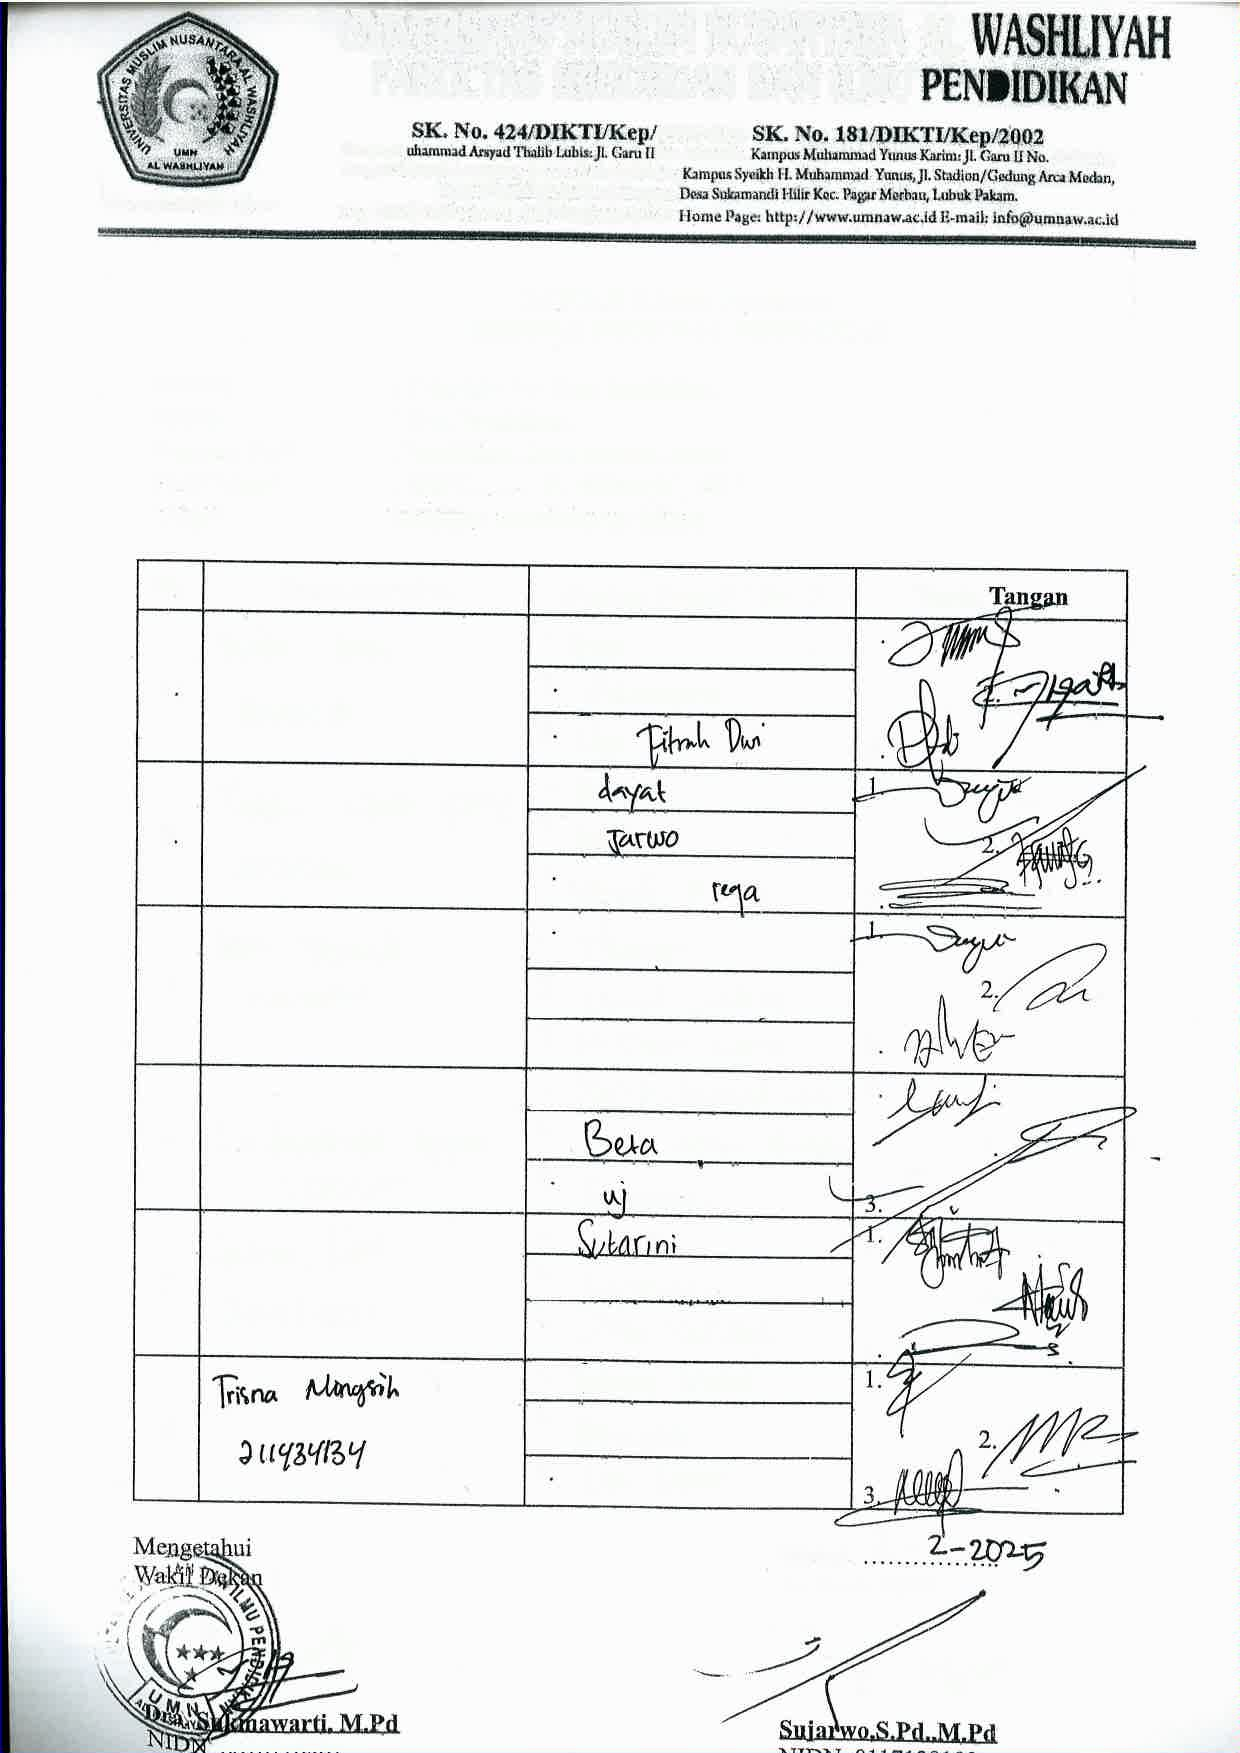 WASHLIYAH
PENDIDIKAN
UNIVERSITAS MUSLIM NUSANTARA AL WASHLIYAH
UMN
AL WASHLIYAH
SK. No. 424/DIKTI/Kep/
uhammad Arsyad Thalib Lubis: Jl. Garu II
SK. No. 181/DIKTI/Kep/2002
Kampus Muhammad Yunus Karim: Jl. Garu II No.
Kampus Syeikh H. Muhammad Yunus, Jl. Stadion/Gedung Arca Medan,
Desa Sukamandi Hilir Kec. Pagar Merbau, Lubuk Pakam.
Home Page: http://www.umnaw.ac.id E-mail: info@umnaw.ac.id
Tangan
2.
Fitrah Dwi
dayat
1.
Jarwo
2.
rega
1.
2.
Beta
uj
3.
Sutarini
1.
Trisna Mongsih
1.
211434134
2.
3.
Mengetahui
2-2025
Wakil Dekan
ILMU PENDIDIKAN
UMN
Dra. Sukmawarti, M.Pd
NIDN
Sujarwo,S.Pd.,M.Pd